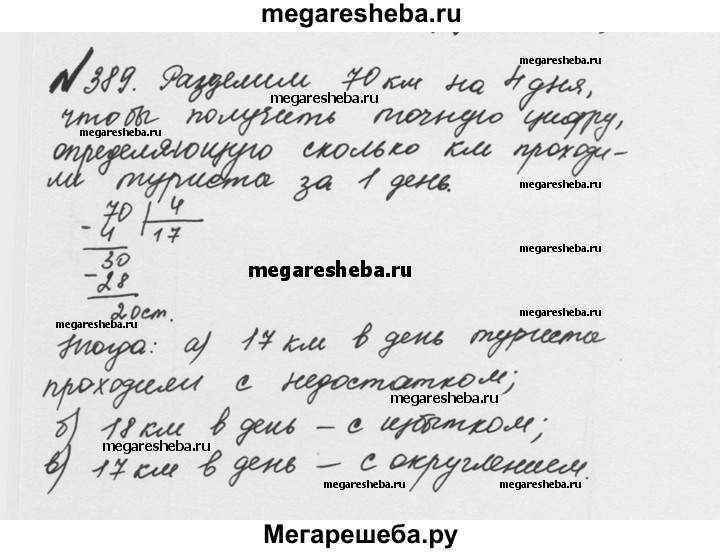 megaresheba.ru
№389. Разделим 70 км на 4 дня,
megaresheba.ru
megaresheba.ru
чтобы получить точную цифру,
megaresheba.ru
определяющую сколько км проходи-
megaresheba.ru
ли туриста за 1 день.
70 | 4
- 4 | 17
30
- 28
2 ост.
megaresheba.ru
megaresheba.ru
Тогда: а) 17 км в день туриста
megaresheba.ru
проходили с недостатком;
megaresheba.ru
б) 18 км в день – с избытком;
megaresheba.ru
в) 17 км в день – с округлением.
megaresheba.ru
megaresheba.ru
Мегарешеба.ру